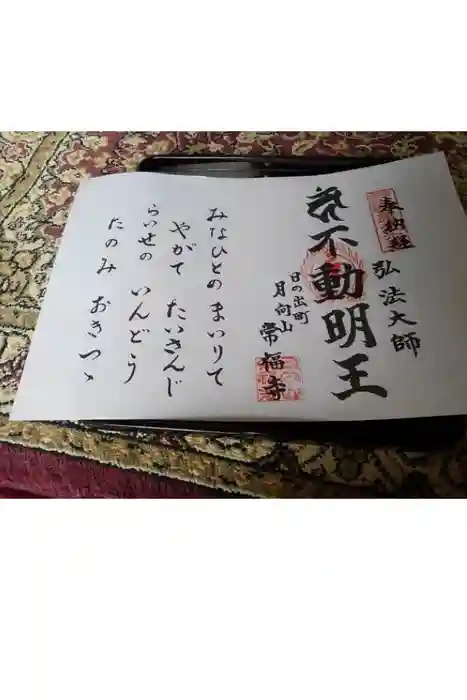 奉納経
弘法大師
不動明王
日の出町
月向山
常福寺
みなひとの まいりて
やがて たいさんじ
らいせの いんどう
たのみ おきつゝ